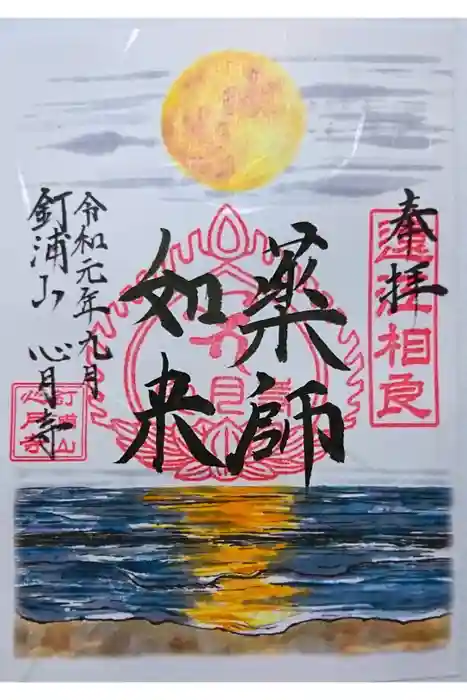 奉拝
遠江相良
薬師
如来
令和元年九月
釘浦山 心月寺
釘浦山
心月寺